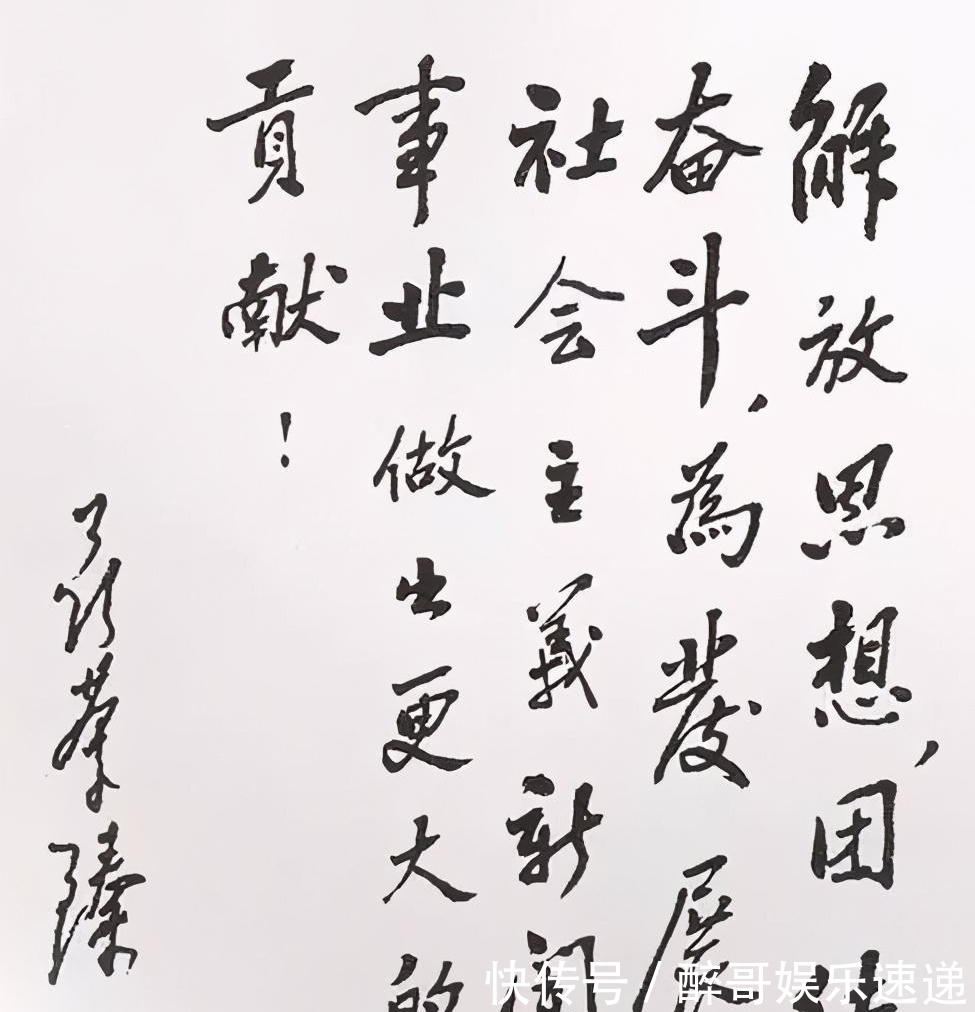 解放思想，团
奋斗，為發展
社会主義新闻
事业做出更大的
貢献！
聂荣臻
快传号/醉哥娱乐速递